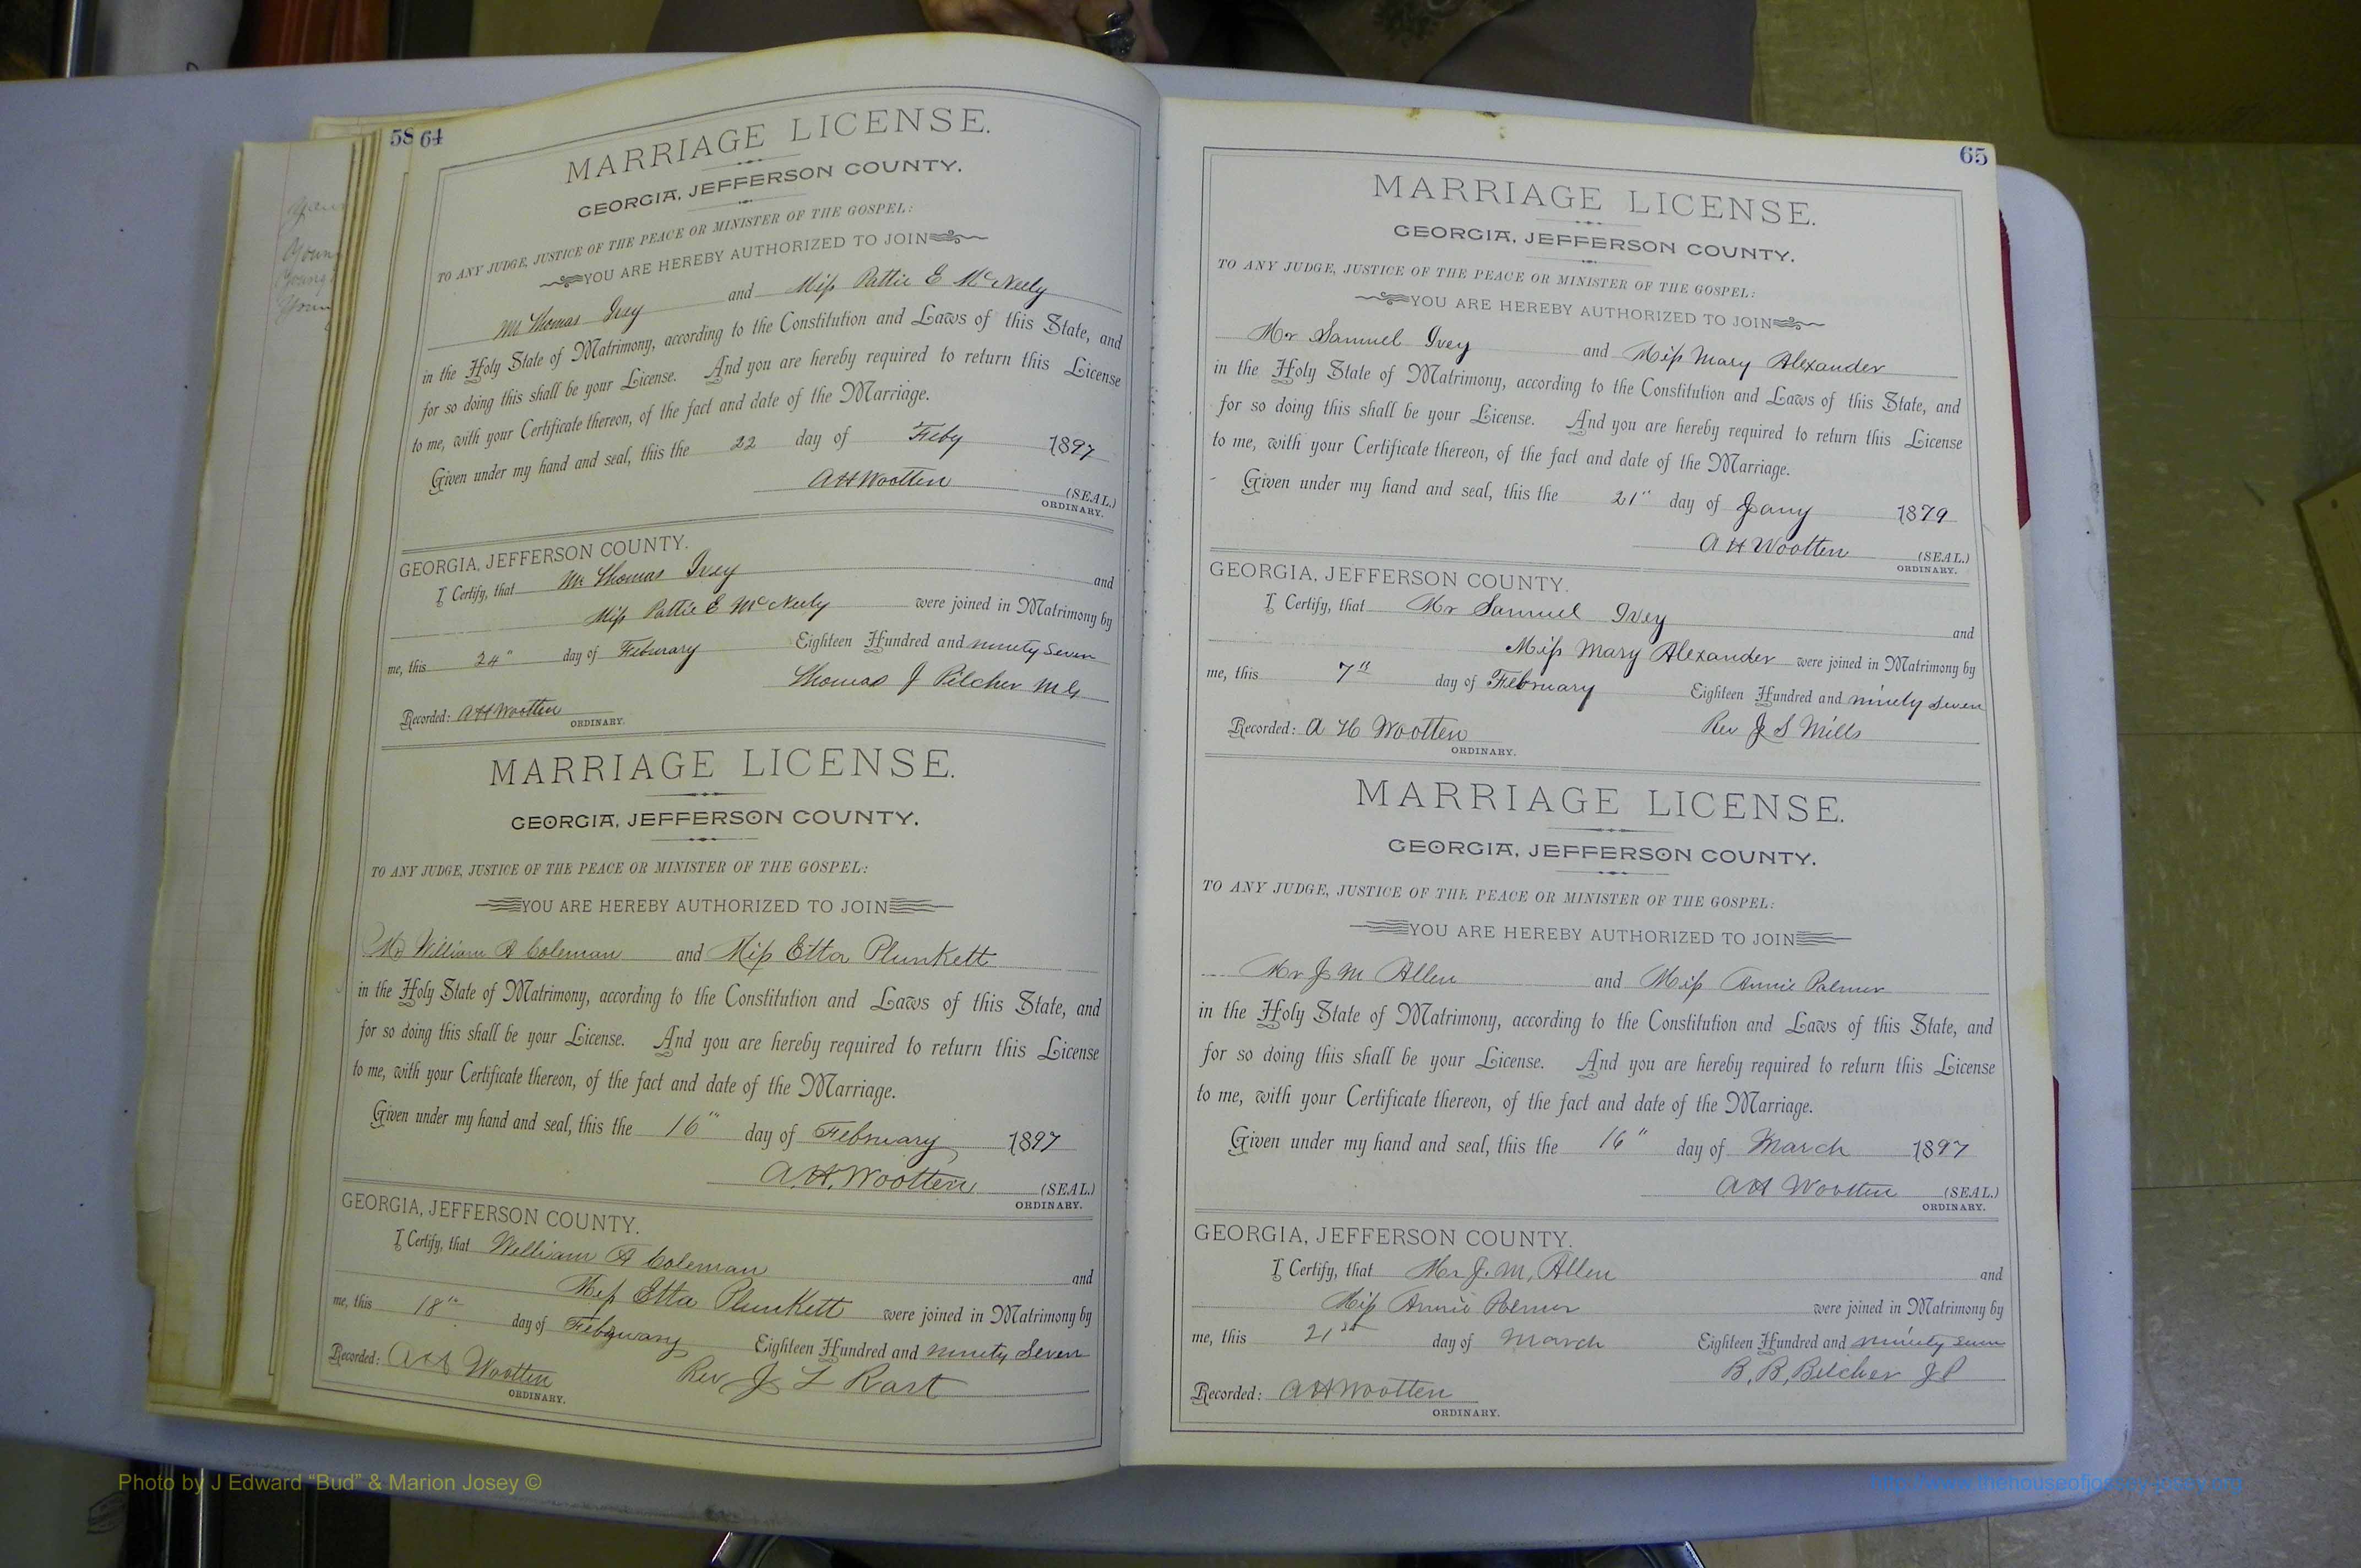 58 64
MARRIAGE LICENSE.
GEORGIA, JEFFERSON COUNTY.
TO ANY JUDGE, JUSTICE OF THE PEACE OR MINISTER OF THE GOSPEL:
YOU ARE HEREBY AUTHORIZED TO JOIN
Mr Thomas Ivey and Miss Pattie E McNeely
in the Holy State of Matrimony, according to the Constitution and Laws of this State, and
for so doing this shall be your License. And you are hereby required to return this License
to me, with your Certificate thereon, of the fact and date of the Marriage.
Given under my hand and seal, this the 22 day of Feby 1897
A H Wootten (SEAL.)
ORDINARY.
GEORGIA, JEFFERSON COUNTY.
I Certify, that Mr Thomas Ivey and
Miss Pattie E McNeely were joined in Matrimony by
me, this 24" day of Feburary Eighteen Hundred and ninety Seven
Thomas J Pilcher M G
Recorded: A H Wootten
ORDINARY.
MARRIAGE LICENSE.
GEORGIA, JEFFERSON COUNTY.
TO ANY JUDGE, JUSTICE OF THE PEACE OR MINISTER OF THE GOSPEL:
YOU ARE HEREBY AUTHORIZED TO JOIN
Mr William A Coleman and Miss Etta Plunkett
in the Holy State of Matrimony, according to the Constitution and Laws of this State, and
for so doing this shall be your License. And you are hereby required to return this License
to me, with your Certificate thereon, of the fact and date of the Marriage.
Given under my hand and seal, this the 16" day of February 1897
A. H. Wootten (SEAL.)
ORDINARY.
GEORGIA, JEFFERSON COUNTY.
I Certify, that William A Coleman and
Miss Etta Plunkett were joined in Matrimony by
me, this 18th day of February Eighteen Hundred and ninety Seven
Rev J L Rast
Recorded: A H Wootten
ORDINARY.
65
MARRIAGE LICENSE.
GEORGIA, JEFFERSON COUNTY.
TO ANY JUDGE, JUSTICE OF THE PEACE OR MINISTER OF THE GOSPEL:
YOU ARE HEREBY AUTHORIZED TO JOIN
Mr Samuel Ivey and Miss Mary Alexander
in the Holy State of Matrimony, according to the Constitution and Laws of this State, and
for so doing this shall be your License. And you are hereby required to return this License
to me, with your Certificate thereon, of the fact and date of the Marriage.
Given under my hand and seal, this the 21" day of Jany 1879
A H Wootten (SEAL.)
ORDINARY.
GEORGIA, JEFFERSON COUNTY.
I Certify, that Mr Samuel Ivey and
Miss Mary Alexander were joined in Matrimony by
me, this 7th day of February Eighteen Hundred and ninety Seven
Rev J S Mills
Recorded: A H Wootten
ORDINARY.
MARRIAGE LICENSE.
GEORGIA, JEFFERSON COUNTY.
TO ANY JUDGE, JUSTICE OF THE PEACE OR MINISTER OF THE GOSPEL:
YOU ARE HEREBY AUTHORIZED TO JOIN
Mr J M Allen and Miss Annie Palmer
in the Holy State of Matrimony, according to the Constitution and Laws of this State, and
for so doing this shall be your License. And you are hereby required to return this License
to me, with your Certificate thereon, of the fact and date of the Marriage.
Given under my hand and seal, this the 16" day of March 1897
A H Wootten (SEAL.)
ORDINARY.
GEORGIA, JEFFERSON COUNTY.
I Certify, that Mr J. M. Allen and
Miss Annie Palmer were joined in Matrimony by
me, this 21st day of March Eighteen Hundred and ninety seven
B. B. Belcher J P
Recorded: A H Wootten
ORDINARY.
Photo by J Edward “Bud” & Marion Josey ©
http://www.thehouseofjossey-josey.org